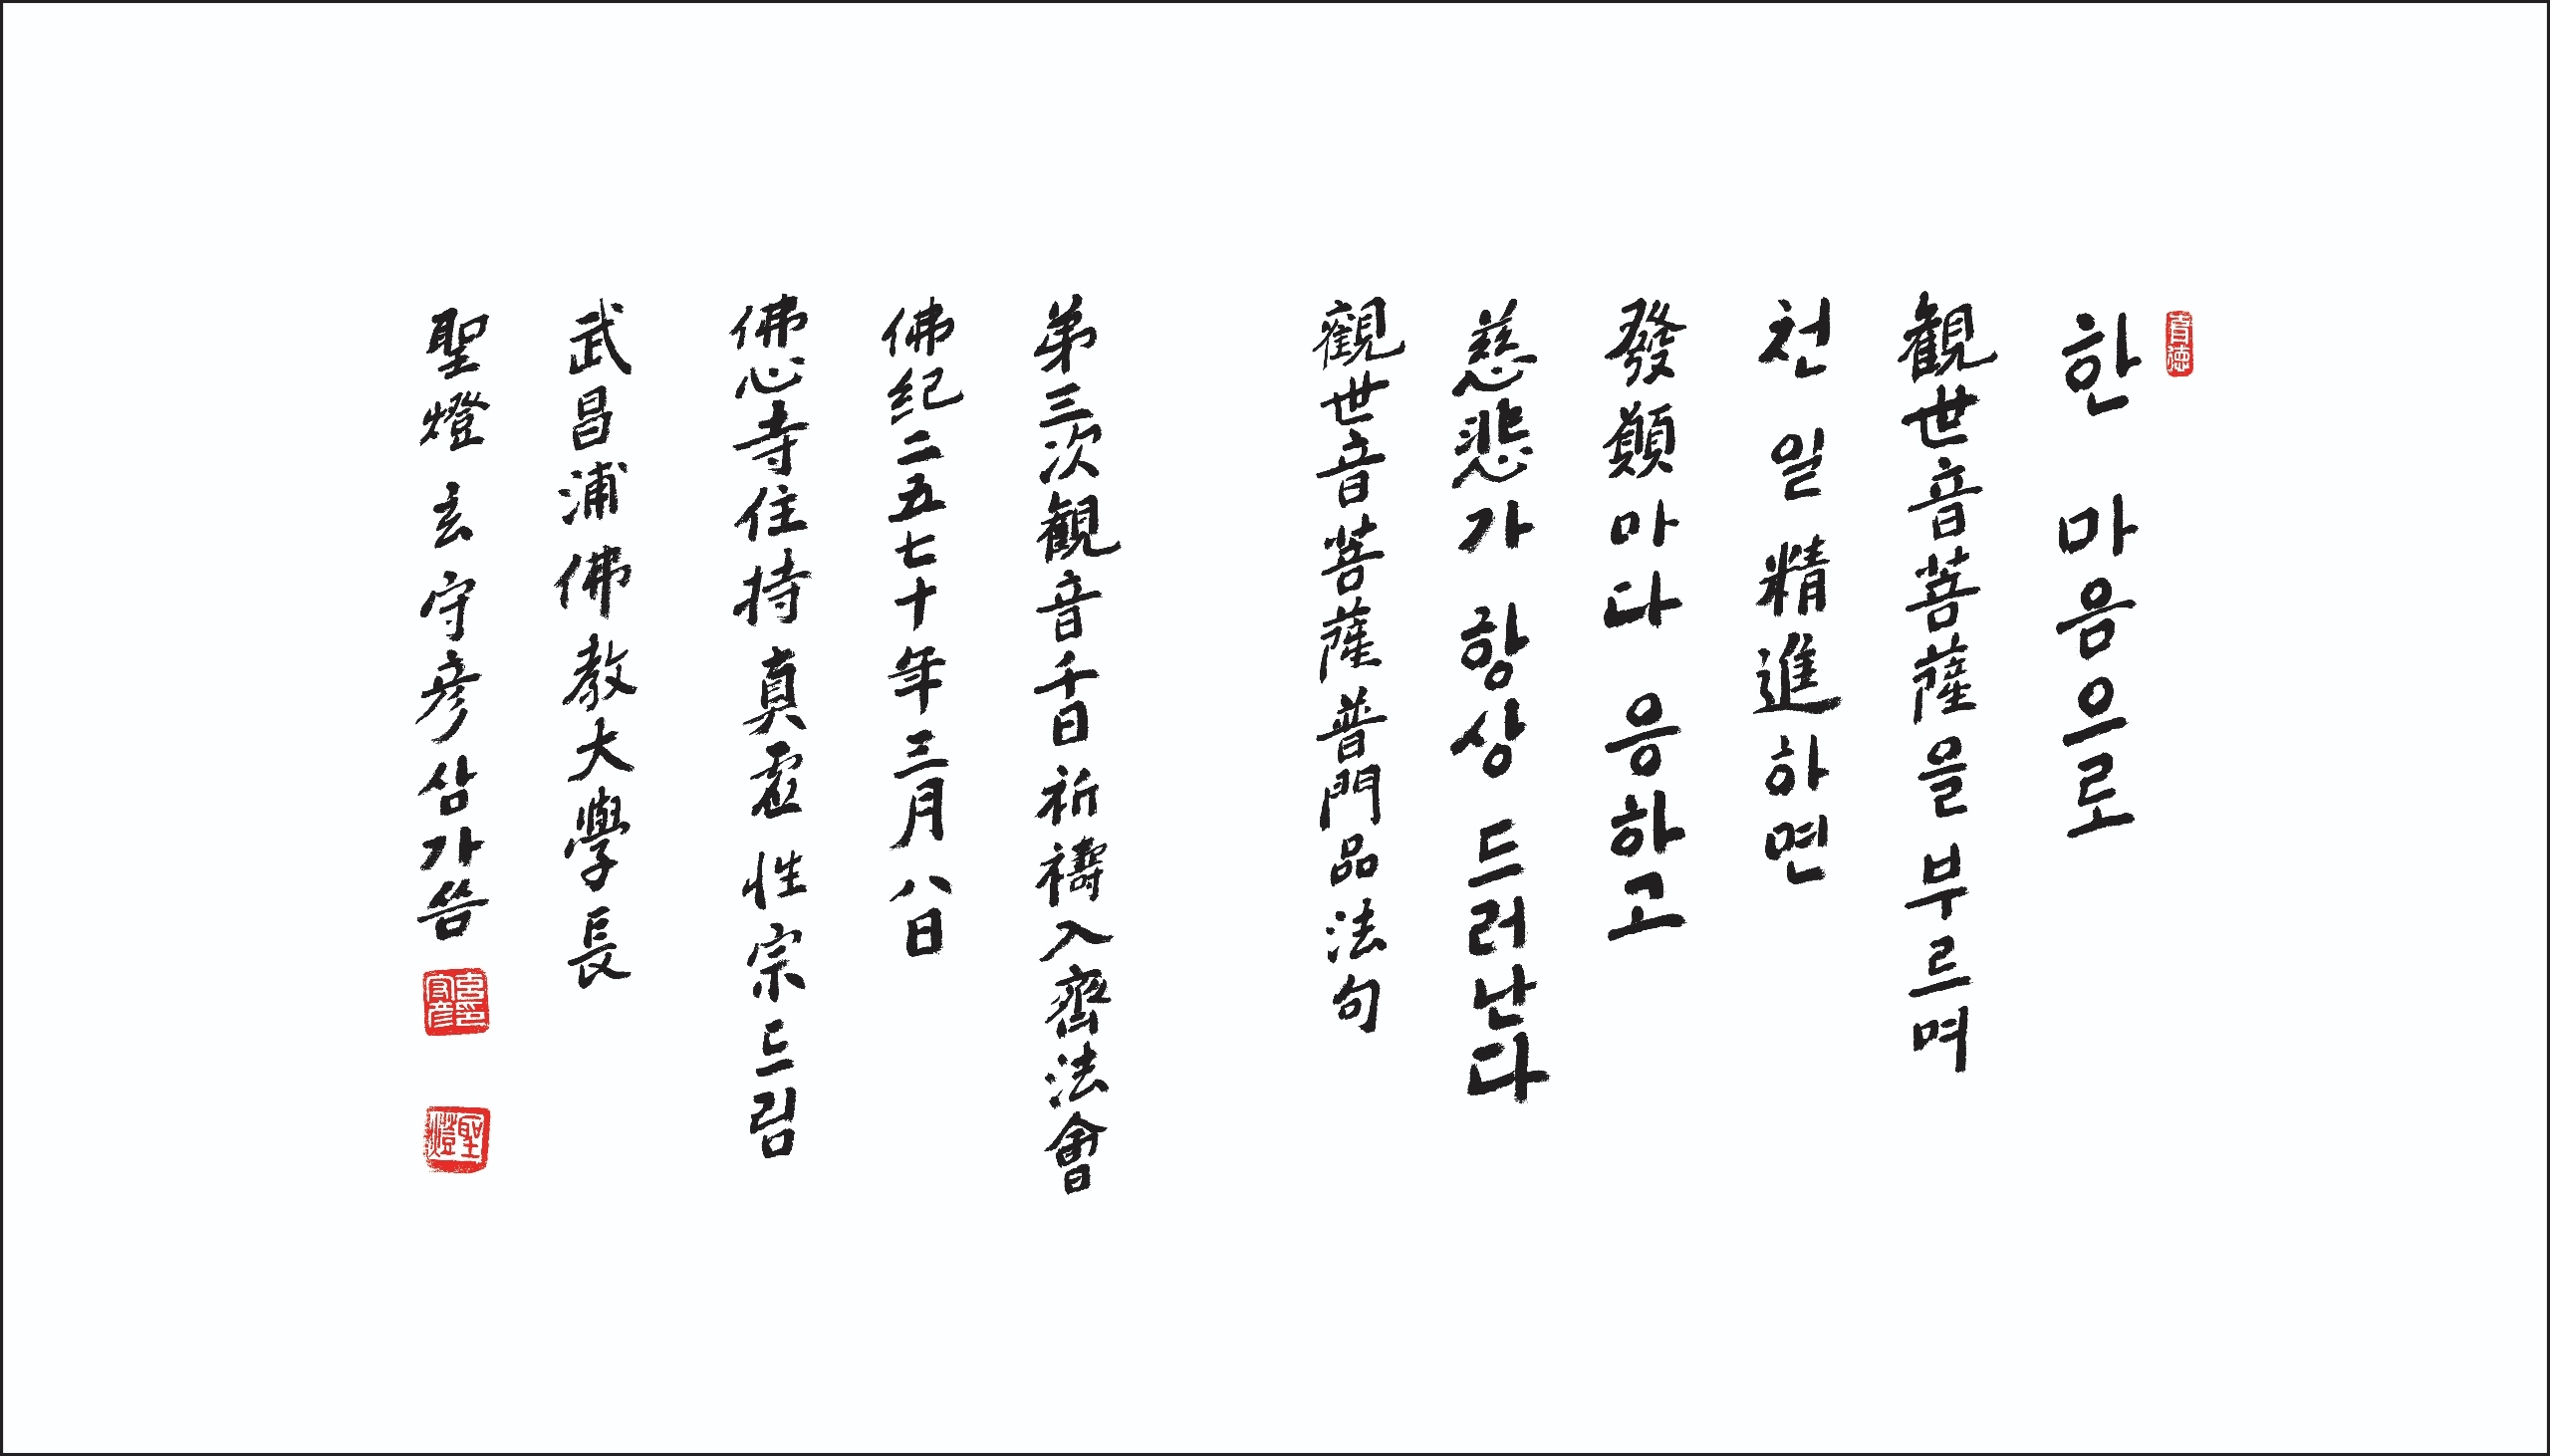 한 마음으로
観世音菩薩을 부르며
천일 精進하면
發願마다 응하고
慈悲가 항상 드러난다
觀世音菩薩普門品法句
弟三次観音千日祈禱入齋法會
佛紀二五七十年三月八日
佛心寺住持 真虛 性宗 드림
武昌浦佛教大學長
聖燈 玄守彦 삼가씀
聖燈